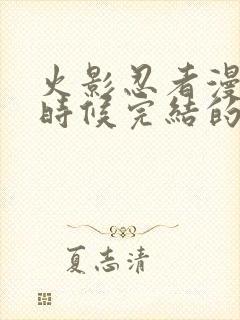 火影忍者漫
時候完結的
夏志清